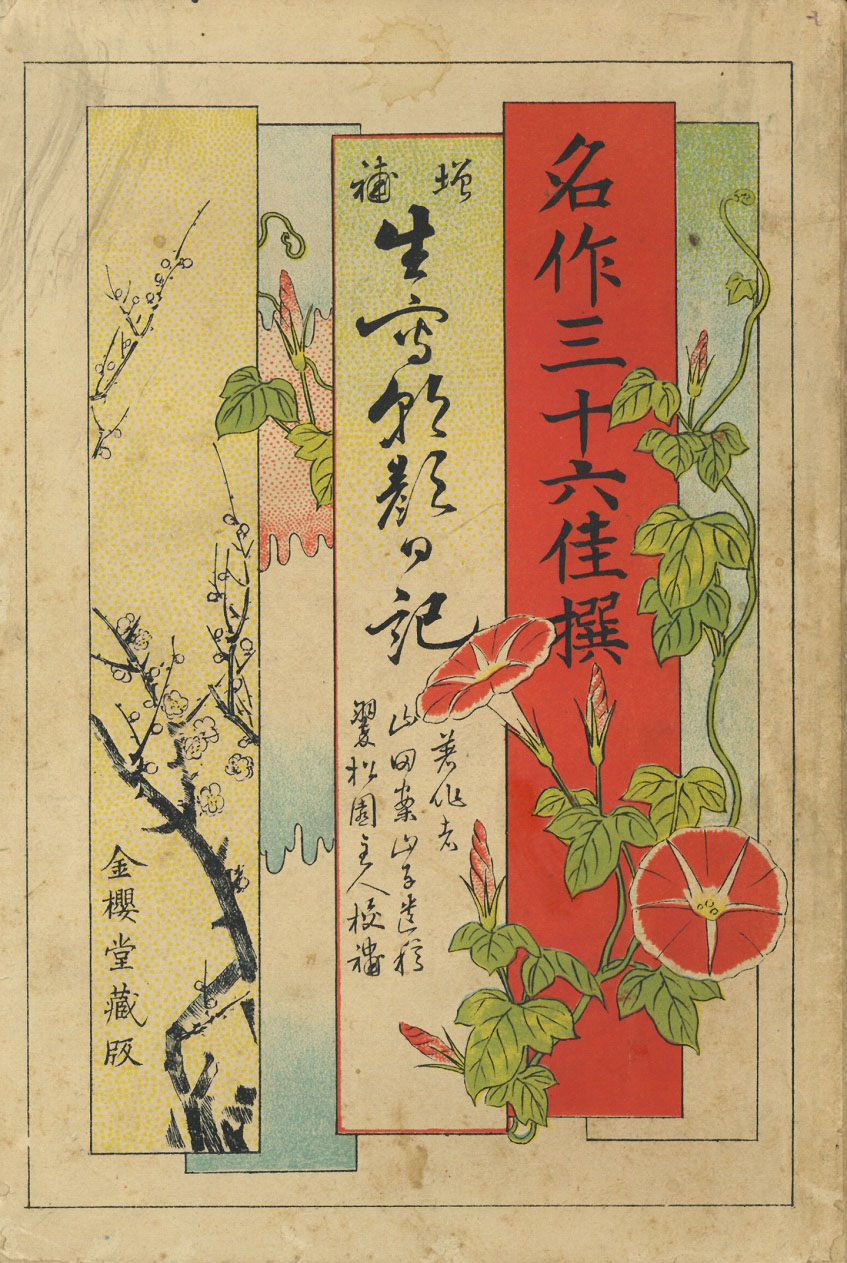 名作三十六佳撰
増補
生寫朝顔日記
著作者
山田案山子遺稿
翠松園主人校補
金櫻堂藏版